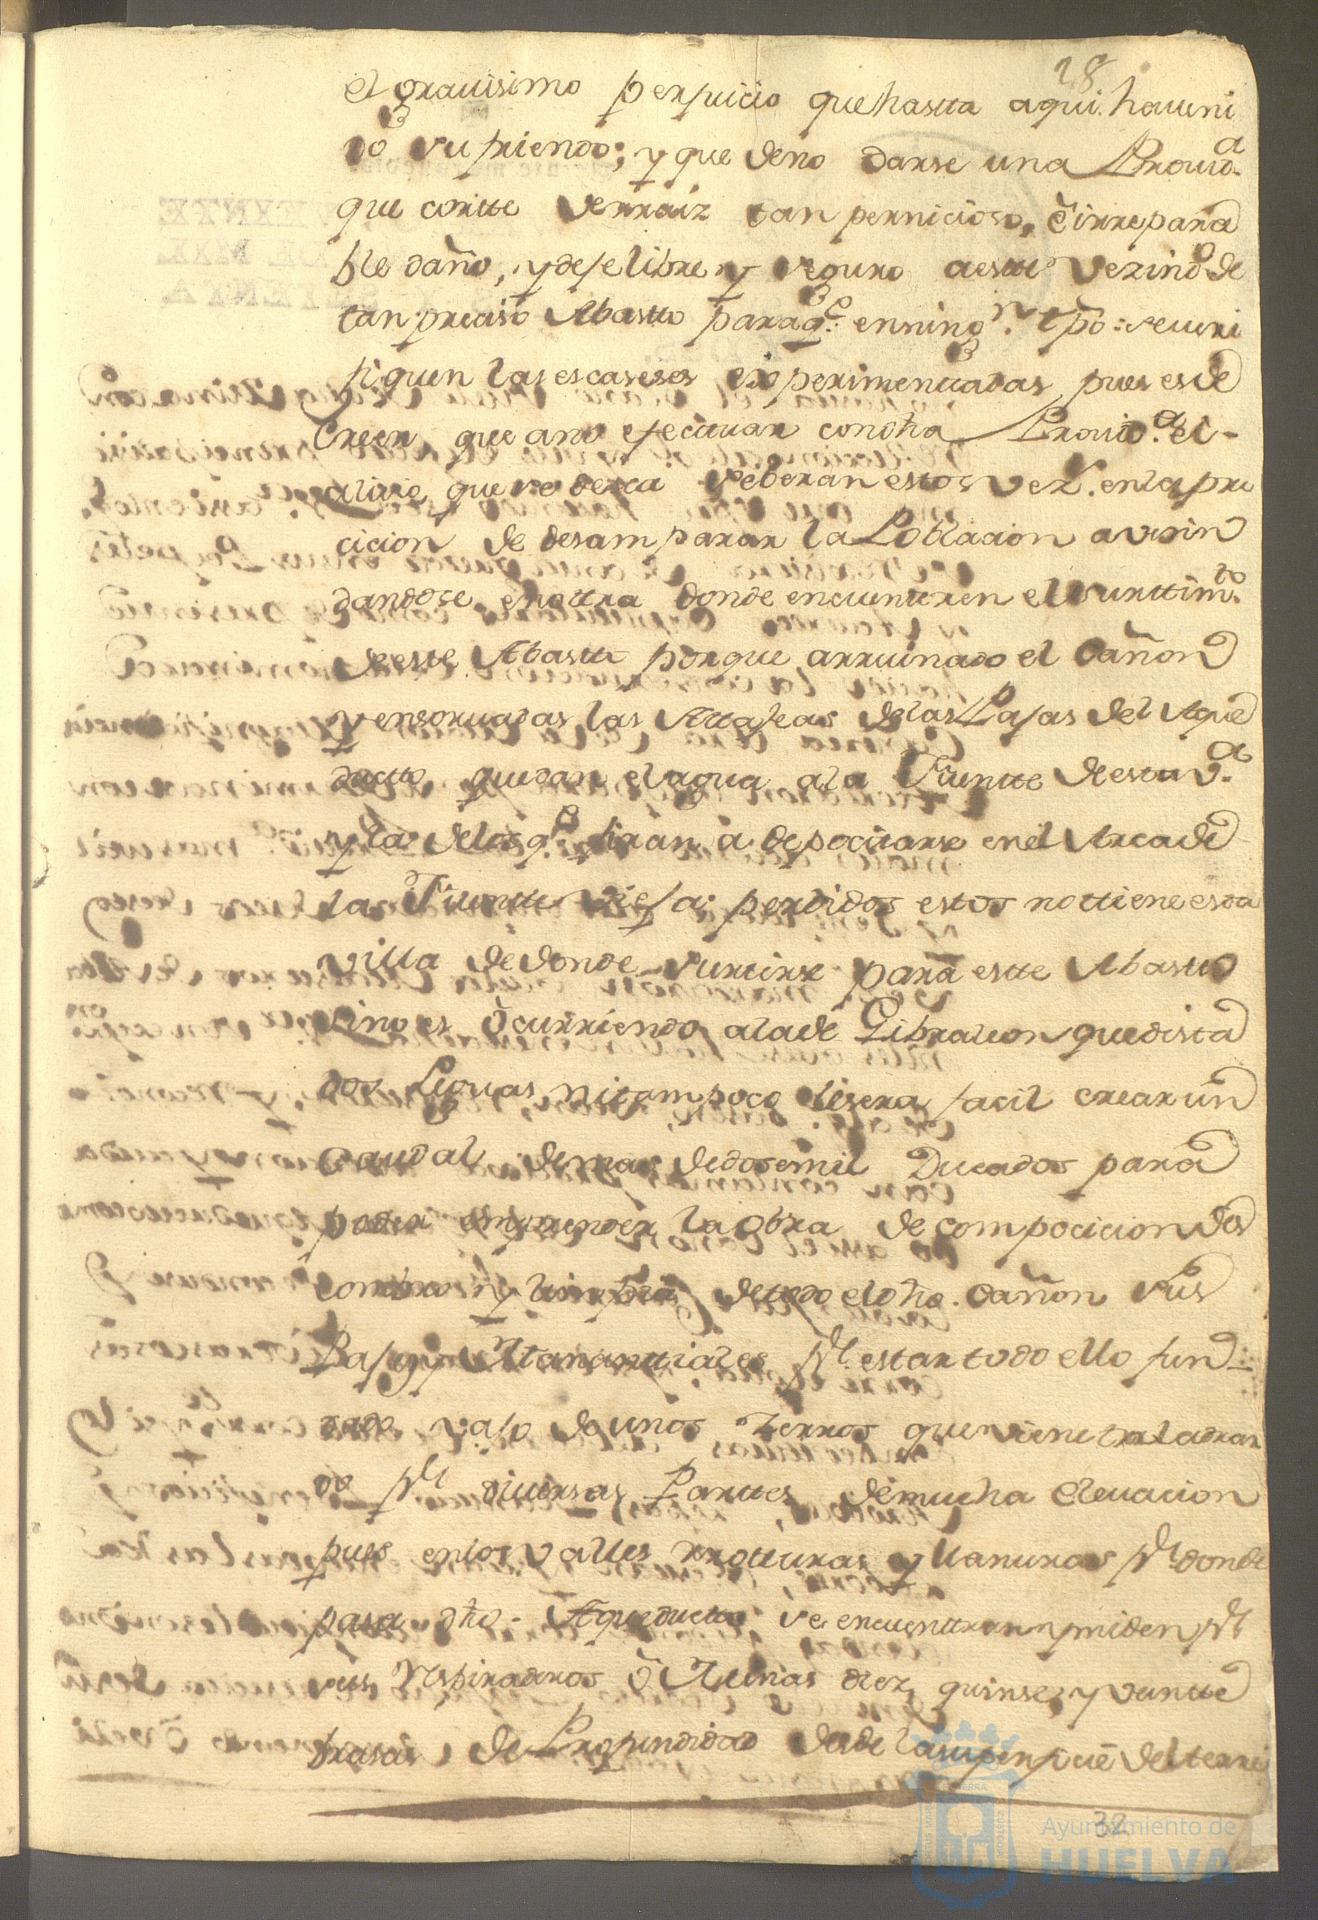 28
el grauisimo perjuicio que hasta aqui. ha ueni
do sufriendo; y que deno darse una Prouid.ª
que cortte derraiz tan pernicioso, è irrepara
ble daño, y defe libre y seguro aestte Vezin.º de
tan preciso Abastto para q.e en ning.n tpõ: se ueri
fiquen las escaseses experimenttadas pues es de
Creer que ano efecttuar con dha Prouid.ª el
aliuio que se desea deberan estos Vez.s en la pre
cicion de desamparar la Poblacion avecin
dandose en ottra donde encuentren el surttim.to
de este Abastto porque arruinado el Cañon
y ensoruadas las Attajeas delas Lajas del Aque
ducto que dan el agua ala Fuente de esta V.ª
y la delos q.e tiran a depocitarse en el Arca de
la Fuente Vieja: perdidos estos no ttiene estta
Villa de donde surtirse para estte Abastto
Sino es òcurriendo ala de Gibraleon que dista
dos Leguas, ni tampoco le sera facil crear un
Caudal de mas de dosemil Ducados para
poder emprender la obra de composicion des
combro y limpia de todo el dho. Cañon sus
Bajos y Manantiales p.r estar todo ello fun
dado vajo de unos Zerros que viene taladran
do p.r diuersas Parttes de mucha eleuacion
pues en los Valles rotturas y llanuras p.r donde
pasa dho. Aqueducto se encuenttran y miden p.r
sus Respiraderos ò Lunas diez, quinse, y veintte
brasas de Profundidad desde la superficie del terre
32
Ayuntamiento de
HUELVA